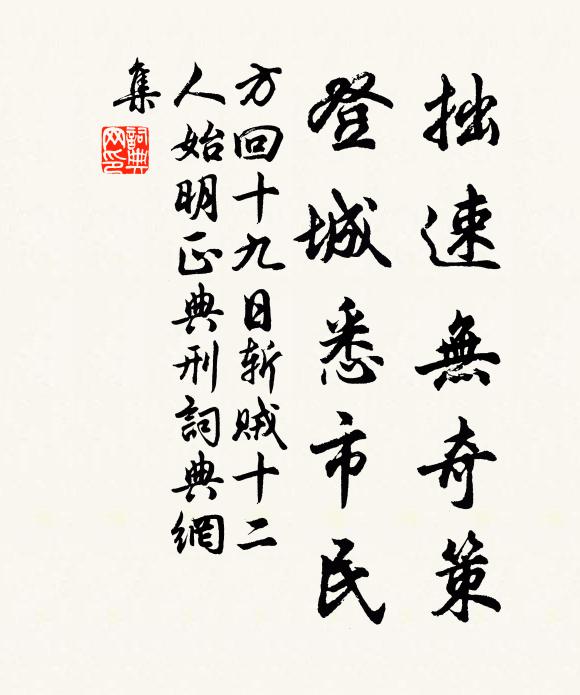 拙速無奇策
登城悉市民
方回十九日斩贼十二
人始明正典刑詞典網
集
詞典
网印